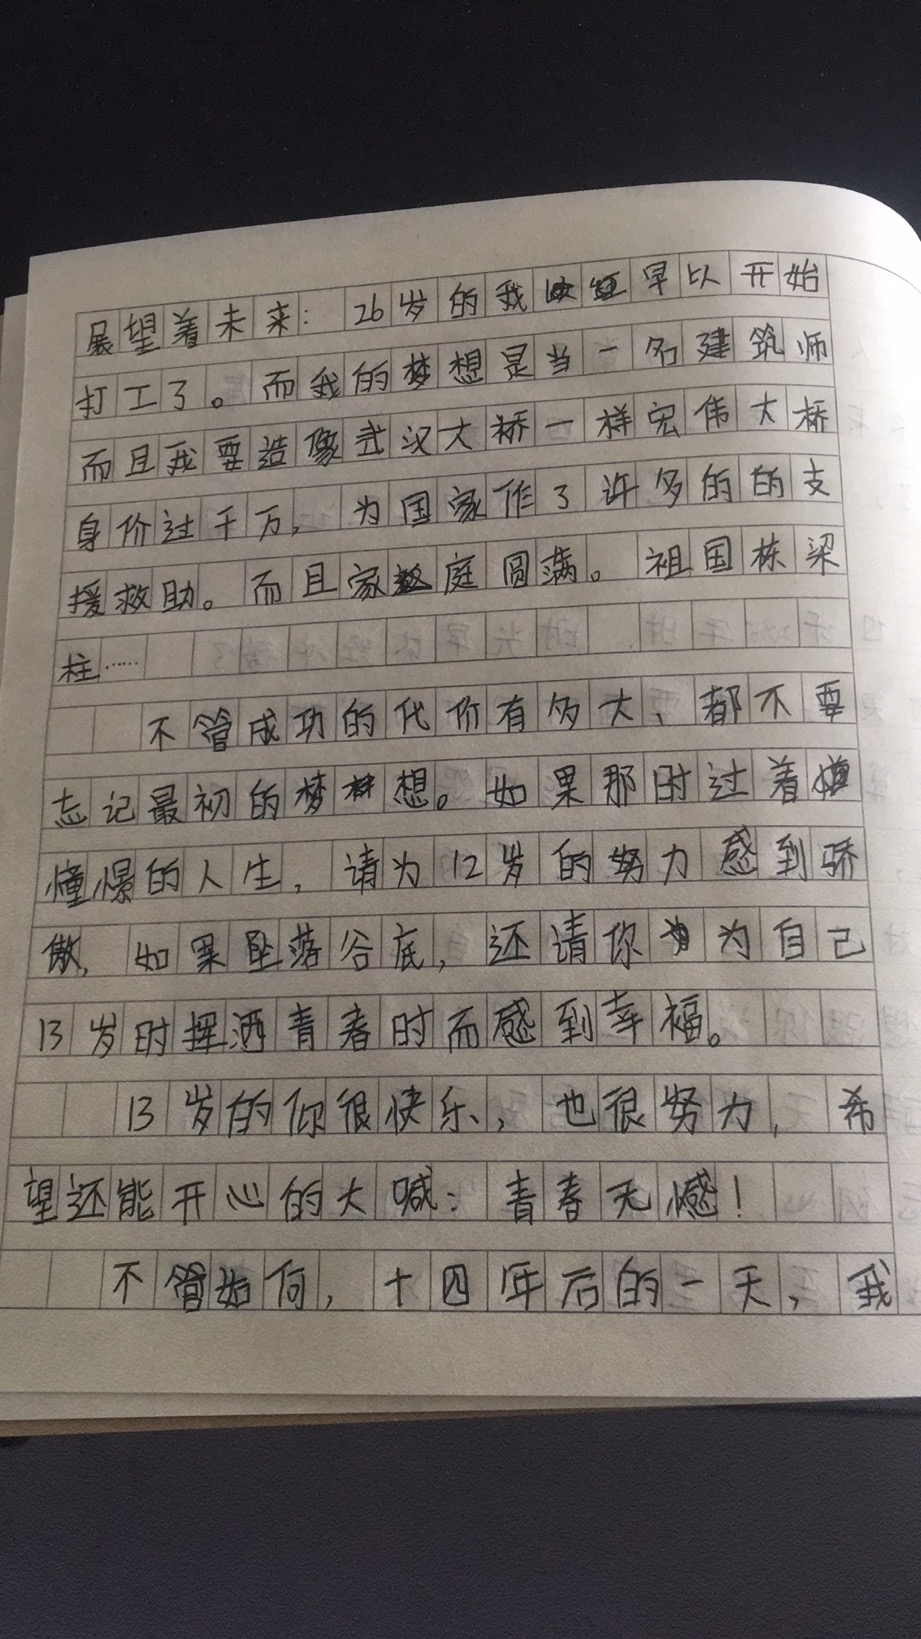 展望着未来：26岁的我早以开始
打工了。而我的梦想是当一名建筑师
而且我要造像武汉大桥一样宏伟大桥
身价过千万，为国家作了许多的的支
援救助。而且家庭圆满。祖国栋梁
柱……
不管成功的代价有多大，都不要
忘记最初的梦想。如果那时过着
憧憬的人生，请为12岁的努力感到骄
傲，如果坠落谷底，还请你为自己
13岁时挥洒青春时而感到幸福。
13岁的你很快乐，也很努力，希
望还能开心的大喊：青春无憾！
不管如何，十四年后的一天，我